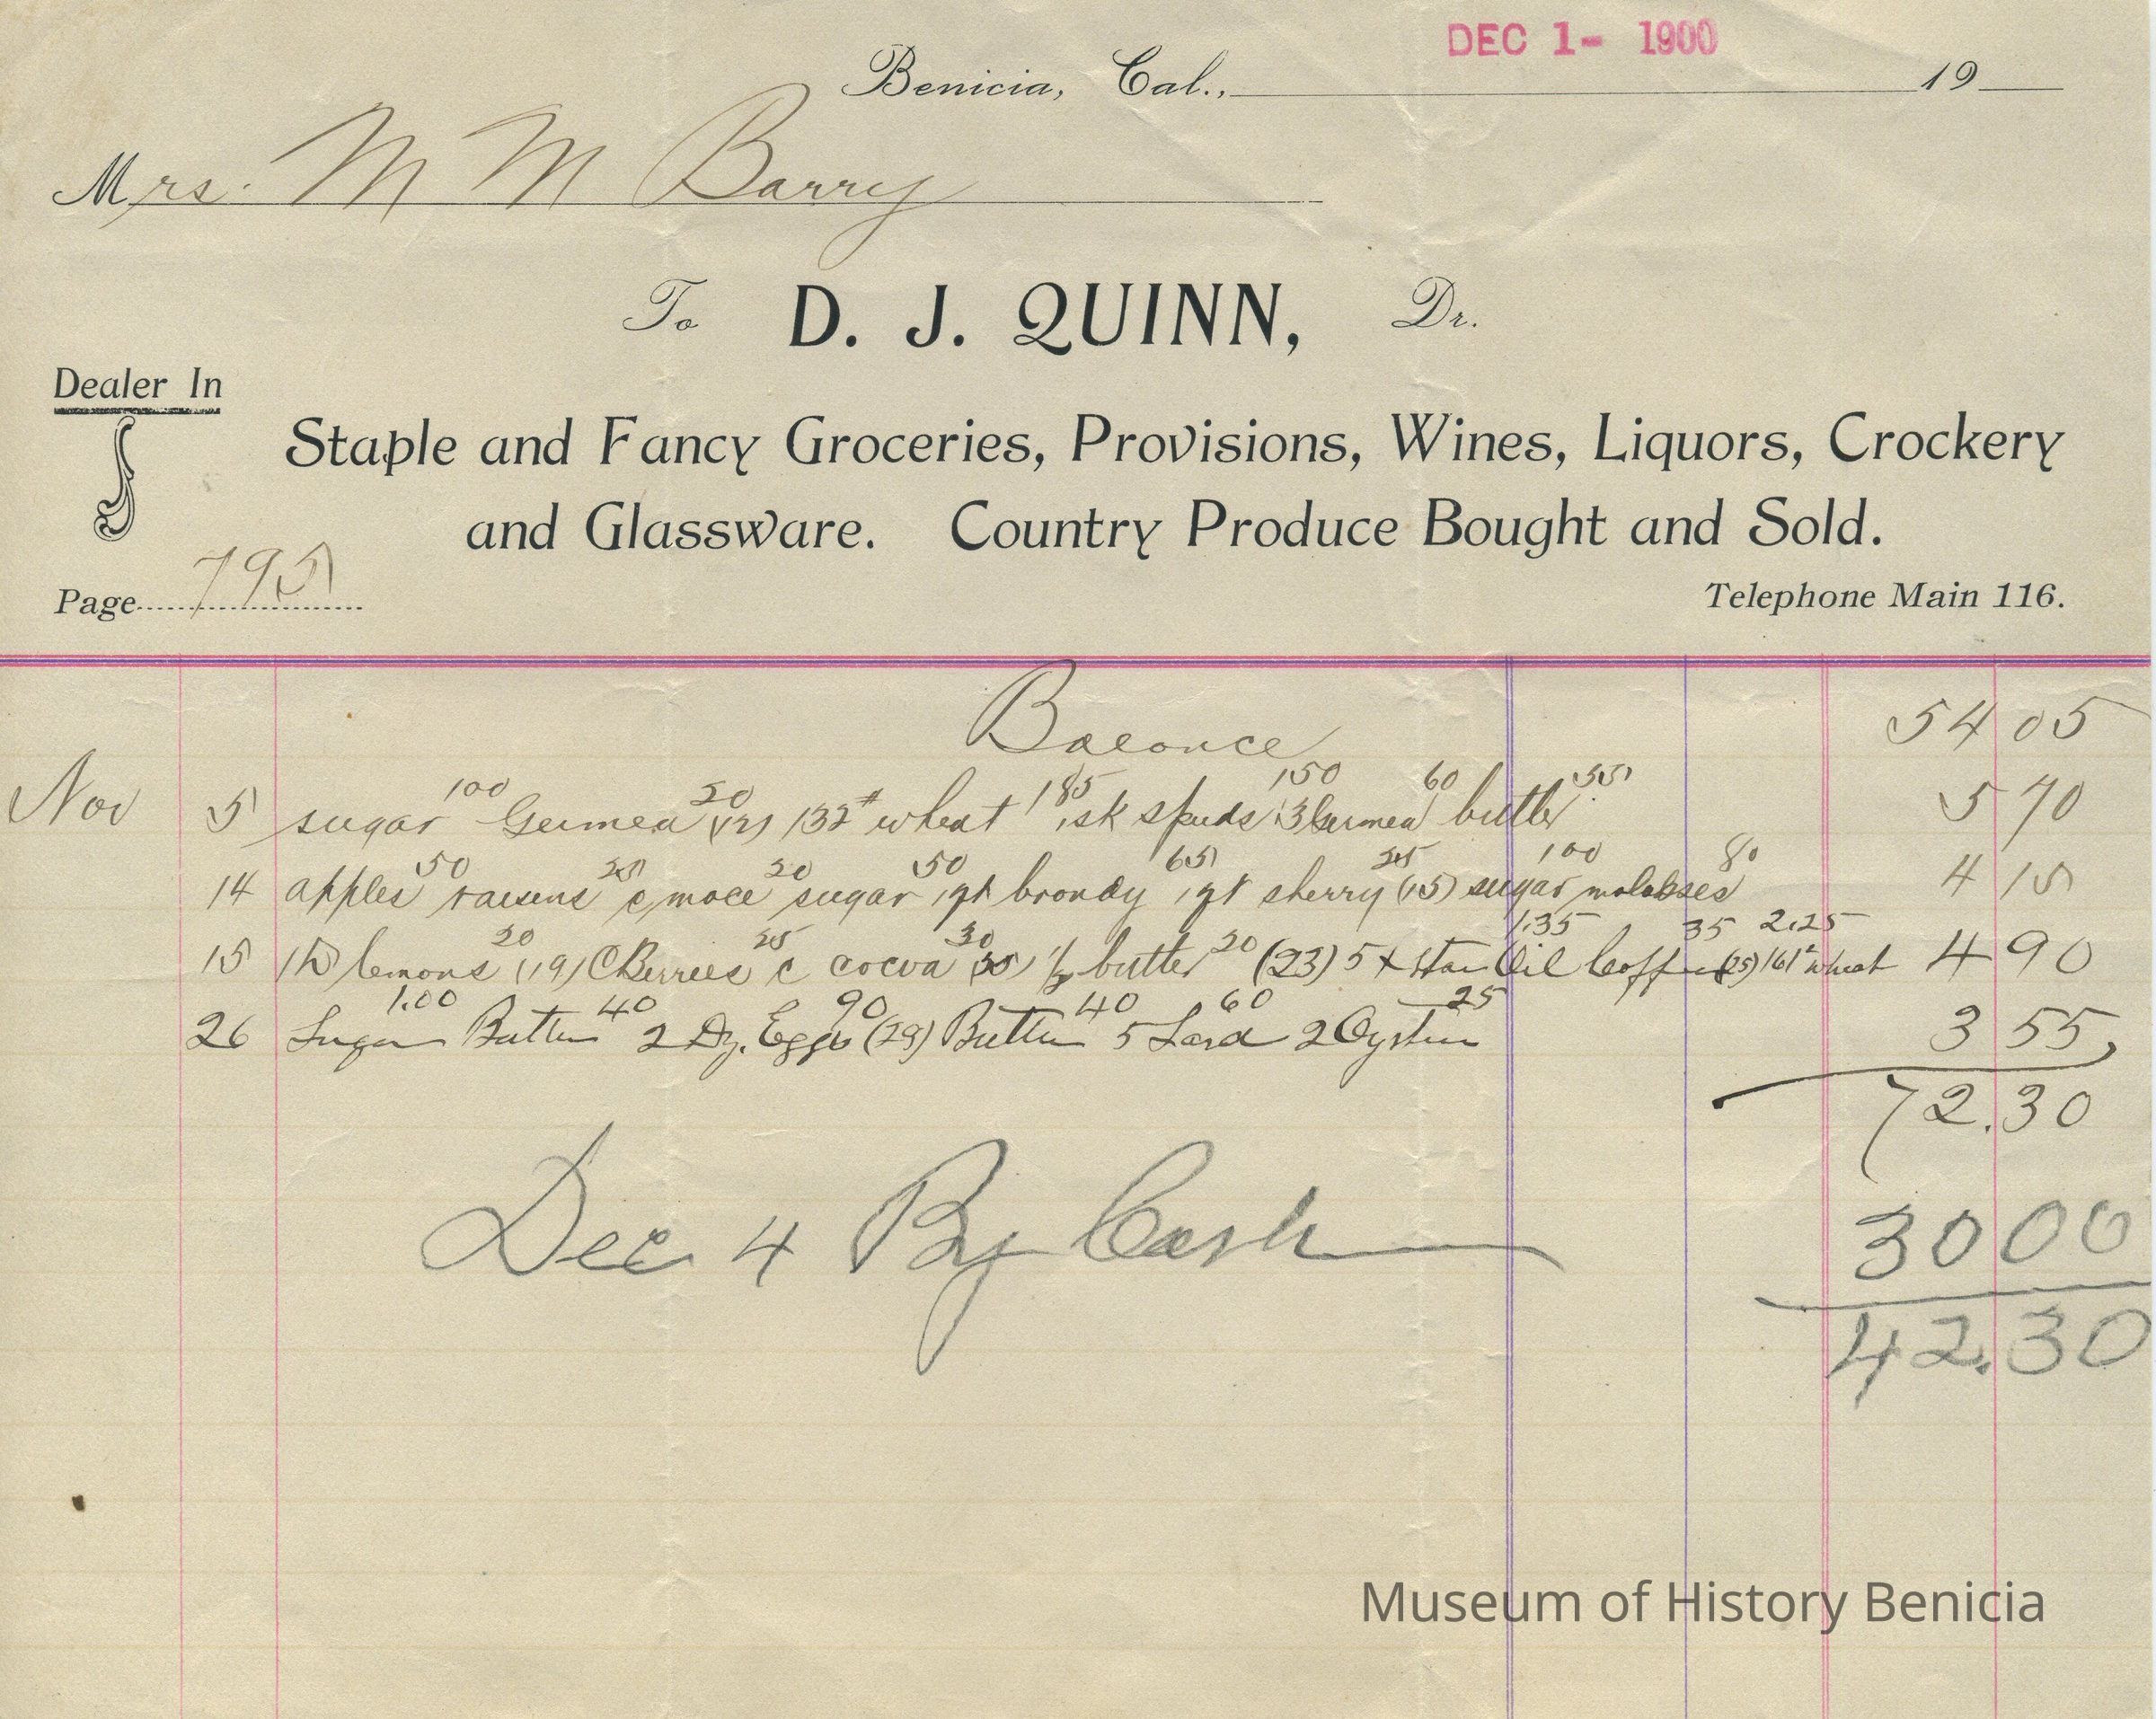 DEC 1- 1900
Benicia, Cal., 19
Mrs. M M Barry
To D. J. QUINN, Dr.
Dealer In
Staple and Fancy Groceries, Provisions, Wines, Liquors, Crockery
and Glassware. Country Produce Bought and Sold.
Page 795
Telephone Main 116.
Balance 54 05
100 20 185 150 60 55
Nov 5 sugar Germea (12) 132# wheat 1 sk spuds 3 Germea butter 5 70
50 25 20 50 65 100 80
14 apples raisens c mace sugar 1 qt brandy 1 qt sherry (15) sugar molasses 4 15
20 25 30 20 1.35 35 2.25
15 lemons (19) Cherries c cocoa ½ butter (23) 5 Star Oil Coffee (25) 161# wheat 4 90
1.00 40 90 40 60 25
26 Sugar Butter 2 Dz. Eggs (29) Butter 5 Lard 2 Oysters 3 55
72.30
Dec 4 By Cash 30 00
42.30
Museum of History Benicia